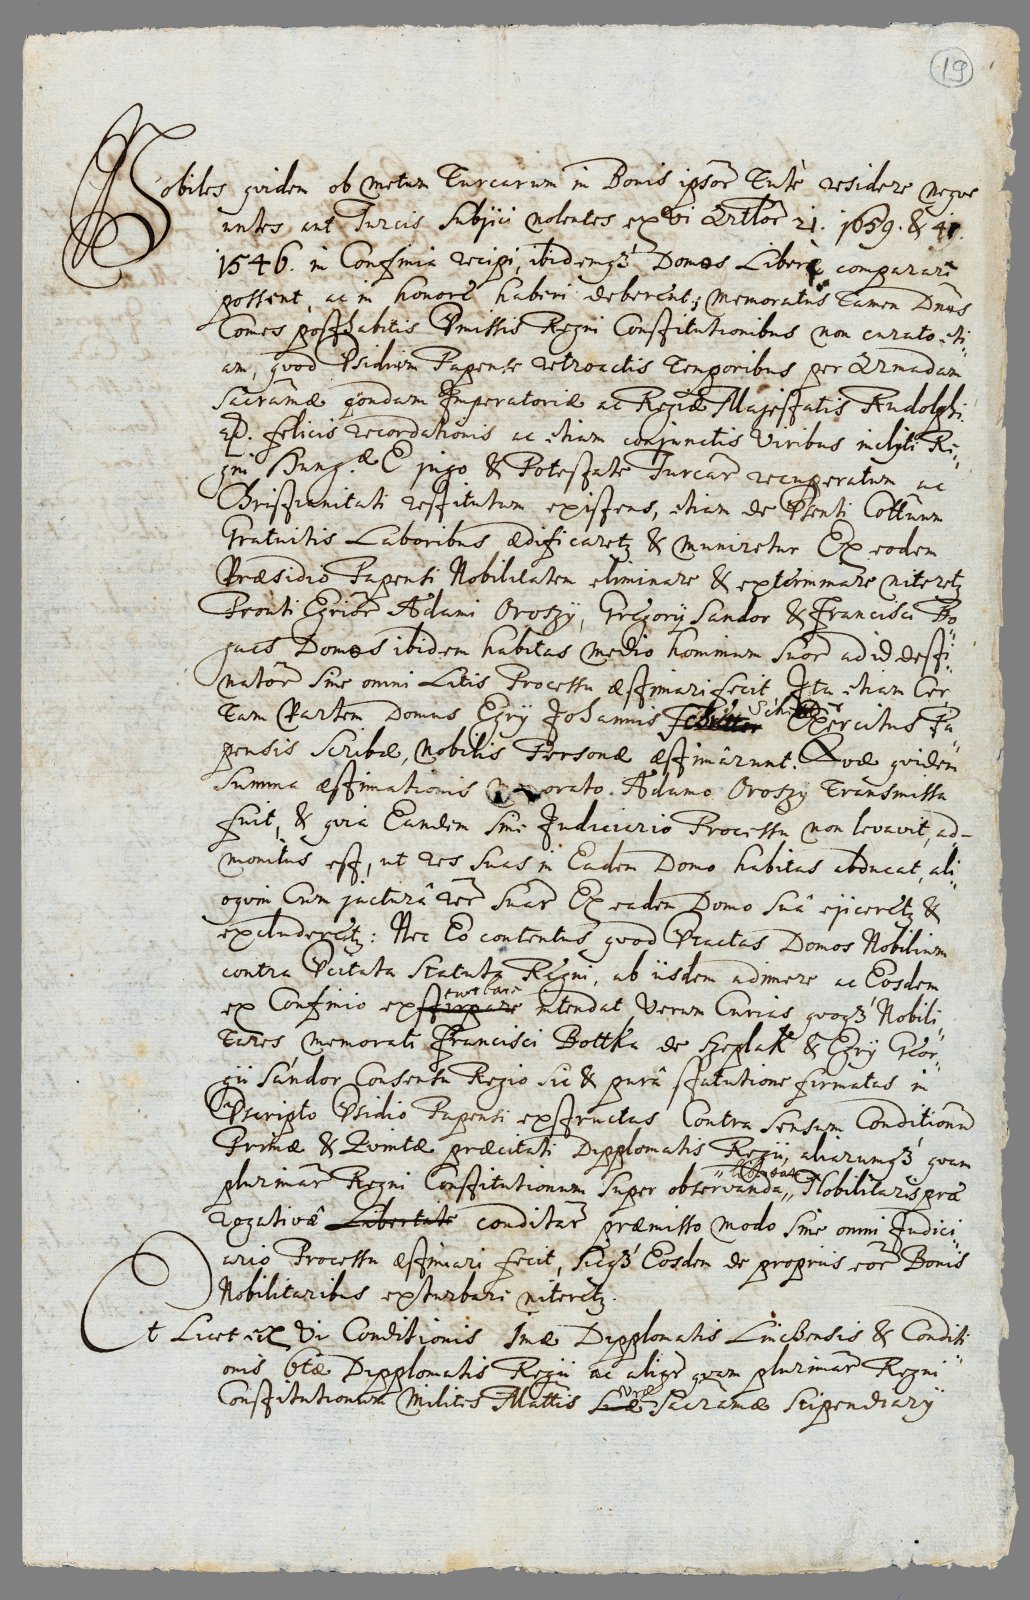 19
Nobiles quidem ob metum Turcarum in Bonis ipsor Tutè residere neque
untes aut Turcis subijci nolentes ex vi Artlor 21. 1659. & 41.
1546. in Confinia recipi, ibidemq3 Domos Liberè comparare
possent, ac in honore haberi deberent; memoratus Tamen Dnus
Comes posthabitis Pmissis Regni Constitutionibus non curato eti-
am, quod Psidium Papense retroactis Temporibus per Armadam
Sacramæ qondam Imperatoriæ ac Regiæ Majestatis Rudolphi
2d. felicis recordationis ac etiam conjunctis Viribus inclyti Re-
gni Hung.æ E jugo & Potestate Turcar recuperatum ac
Christianitati restitutum existens, etiam de Psenti Cottuum
Gratuitis Laboribus ædificaretz & muniretur Ex eodem
Præsidio Papensi Nobilitatem eliminare & exterminare niteretz
Prouti Egrior Adami Oroszy, Gregorij Sandor & Francisci Bo-
gacs Domos ibidem habitas medio hominum suor ad id desti-
nator sine omni Litis Processu æstimari fecit, Ita etiam Cer-
Tam Partem Domus Egry Johannis Exercitus Pa-
pensis Scribæ, nobilis Personæ æstimârunt. Quæ quidem
Summa æstimationis memorato Adamo Oroszy Transmissa
fuit, & quia Eandem sine Judiciario Processu non levavit, ad-
monitus est, ut res suas in Eadem Domo habitas abducat, ali-
oquin Cum jacturâ rer suar Ex eadem Domo suâ ejiceretz &
excluderetz: Nec Eo contentus, quod Ptactas Domos Nobilium
contra Pcitata Statuta Regni, ab iisdem adimere ac Eosdem
ex Confinio exturbare exstirpare intendat, Verum Curias quoq3 Nobili-
Tares memorati Francisci Bottka de Szeplak & Egry Geor-
gii Sándor Consensu Regio sic & purâ statutione firmatas in
Pscripto Psidio Papensi exstructas Contra Sensum Conditionu
Primæ & Quintæ præcitati Dipplomatis Regii, aliarumq3 quam
plurimar Regni Constitutionum super observanda libertate Nobilitaris præ
rogativâ Libertate conditar præmisso modo sine omni Judici-
ario Processu æstimari fecit, sicq3 Eosdem de propriis eor Bonis
Nobilitaribus exturbare niteretz.
Et Licet ex Vi Conditionis 1mæ Dipplomatis Lincbensis & Conditi-
onis 6tæ Dipplomatis Regii ac alior quam plurimar Regni
Constitutionum Milites Mattis Vræ Sacramæ Stipendiary